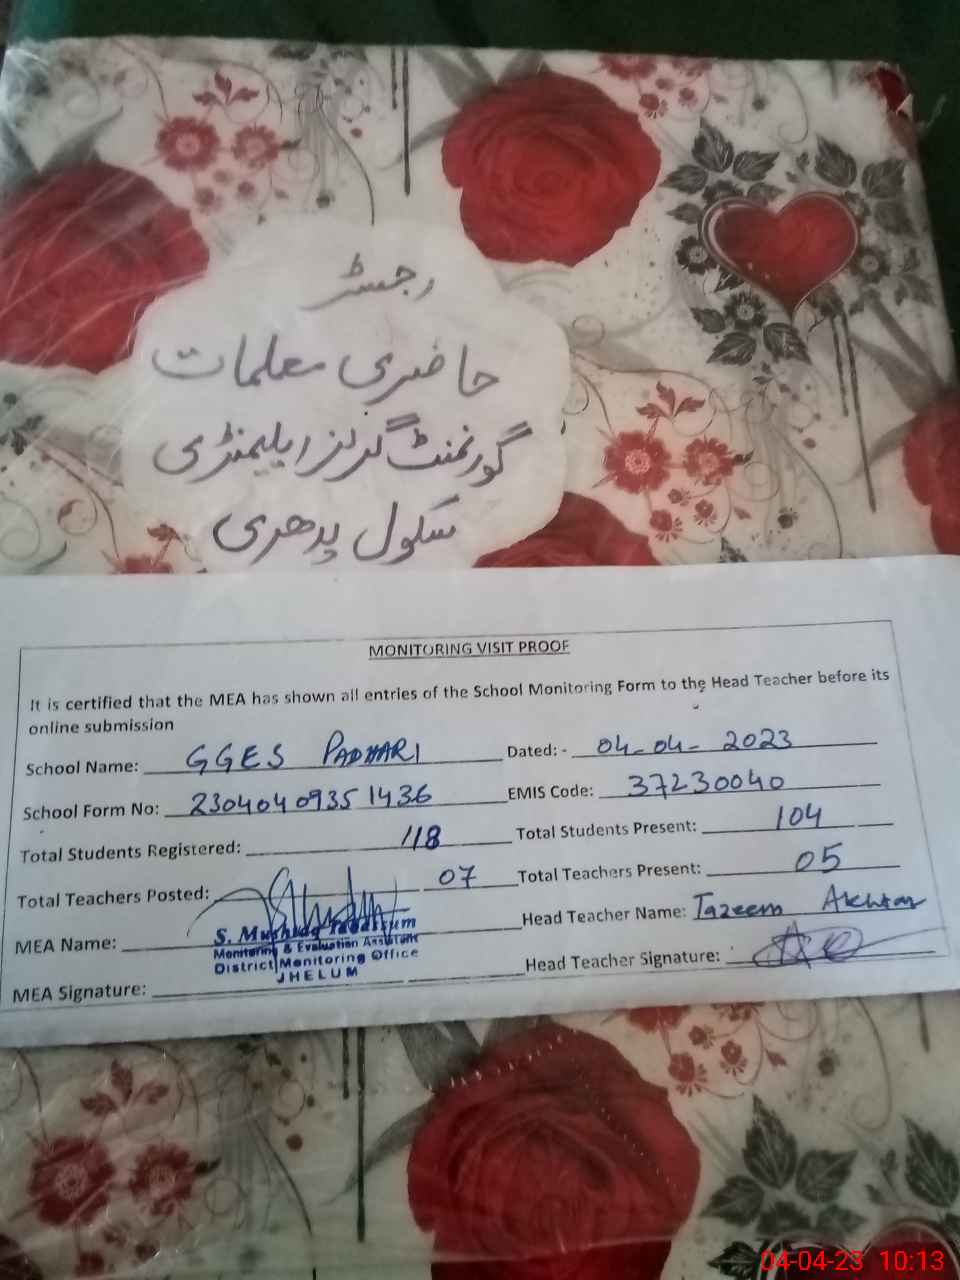 رجسٹر
حاضری معلمات
گورنمنٹ گرلز ایلیمنٹری
سکول پدھری
MONITORING VISIT PROOF
It is certified that the MEA has shown all entries of the School Monitoring Form to the Head Teacher before its
online submission
School Name: GGES PADHARI Dated: - 04-04-2023
School Form No: 23040409351436 EMIS Code: 37230040
Total Students Registered: 118 Total Students Present: 104
Total Teachers Posted: 07 Total Teachers Present: 05
MEA Name: Head Teacher Name: Tazeem Akhtar
S. Murshida Tabassum
Monitoring & Evaluation Assistant
District Monitoring Office
JHELUM
MEA Signature: Head Teacher Signature:
04-04-23 10:13